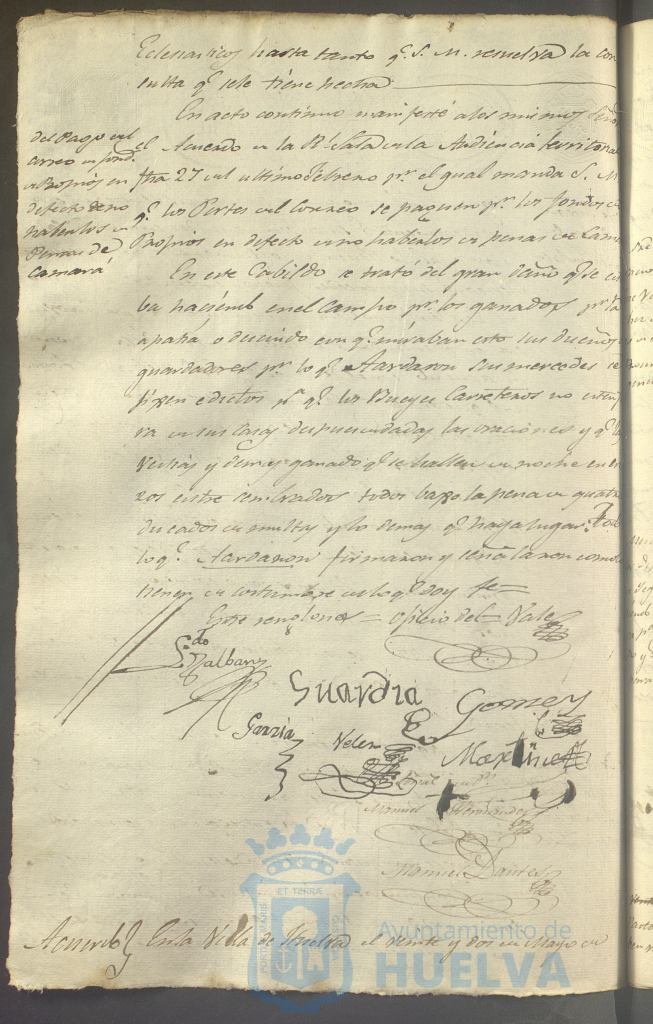 Eclesiasticos hasta tanto q.e S. M. resuelva la con
sulta q.e sele tiene hecha
En acto continuo manifesté alos mismos Señor
el Acuerdo de la R.l Sala de la Audiencia territorial
fha 27 del ultimo Febrero p.r el qual manda S. M.
q.e los Portes del Correo se paguen p.r los fondos de
Propios en defecto de no haberlos de penas de Cama
del Pago del
correo de fond.
Propios en
defecto de no
haberlos de
Penas de
Camará
En este Cabildo se trató del gran daño q.e se es
ba haciendo en el Campo p.r los ganados p.r la
apatía o descuido con q.e miraban esto sus dueños
guardadores p.r lo q.e Acordaron sus mercedes se
fixen edictos p.a q.e los Bueyes Carreteros no
en sus Casas despues de dadas las oraciones y q.e las
Vestias y demas ganado q.e se hallen de noche en
entre sembrados todos baxo la pena de quatro
ducados de multa y lo demas q.e haya lugar. Todo
lo q.e Acordaron firmaron y señalaron como
tienen de costumbre de lo q.e doy fe=
Entre renglones = oficio del = Vale
Guardia
Gomez
Garzia
Velez
Martinez
Manuel Hernandez
Manuel
Acuerdo En la Villa de Huelva el veinte y dos de Mayo de
ET TERRÆ
Ayuntamiento de
HUELVA